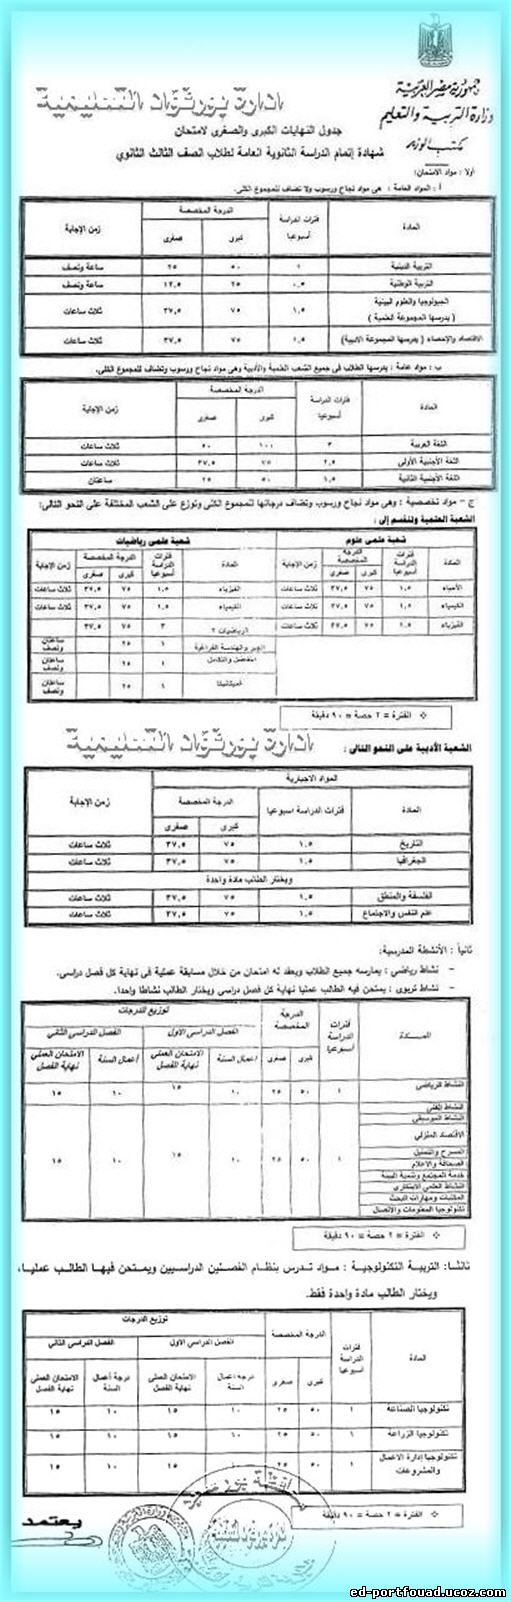 جمهورية مصر العربية
وزارة التربية والتعليم
مكتب الوزير
ادارة بورفؤاد التعليمية
جدول النهايات الكبرى والصغرى لامتحان
شهادة إتمام الدراسة الثانوية العامة لطلاب الصف الثالث الثانوي
أولا : مواد الامتحان:
أ : المواد العامة : هى مواد نجاح ورسوب ولا تضاف للمجموع الكلى.
المادة فترات الدراسة أسبوعيا الدرجة المخصصة زمن الإجابة
كبرى صغرى
التربية الدينية ١ ٥٠ ٢٥ ساعة ونصف
التربية الوطنية ٠,٥ ٢٥ ١٢,٥ ساعة ونصف
الجيولوجيا والعلوم البيئية ( يدرسها المجموعة العلمية ) ١,٥ ٧٥ ٣٧,٥ ثلاث ساعات
الاقتصاد والإحصاء ( يدرسها المجموعة الادبية) ١,٥ ٧٥ ٣٧,٥ ثلاث ساعات
ب : مواد عامة : يدرسها الطلاب فى جميع الشعب العلمية والأدبية وهى مواد نجاح ورسوب وتضاف للمجموع الكلى.
المادة فترات الدراسة أسبوعيا الدرجة المخصصة زمن الإجابة
كبرى صغرى
اللغة العربية ٣ ١٠٠ ٥٠ ثلاث ساعات
اللغة الأجنبية الأولى ٢,٥ ٧٥ ٣٧,٥ ثلاث ساعات
اللغة الأجنبية الثانية ١,٥ ٥٠ ٢٥ ساعتان
ج - مواد تخصصية : وهى مواد نجاح ورسوب وتضاف درجاتها للمجموع الكلى وتوزع على الشعب المختلفة على النحو التالى:
الشعبة العلمية وتنقسم إلى :
شعبة علمى علوم
المادة فترات الدراسة أسبوعيا الدرجة المخصصة زمن الإجابة
كبرى صغرى
الأحياء ١,٥ ٧٥ ٣٧,٥ ثلاث ساعات
الكيمياء ١,٥ ٧٥ ٣٧,٥ ثلاث ساعات
الفيزياء ١,٥ ٧٥ ٣٧,٥ ثلاث ساعات
شعبة علمى رياضيات
المادة فترات الدراسة أسبوعيا الدرجة المخصصة زمن الإجابة
كبرى صغرى
الفيزياء ١,٥ ٧٥ ٣٧,٥ ثلاث ساعات
الكيمياء ١,٥ ٧٥ ٣٧,٥ ثلاث ساعات
الرياضيات ٢ ٣ ٧٥ ٣٧,٥
الجبر والهندسة الفراغية ١ ٢٥ ساعتان ونصف
التفاضل والتكامل ١ ٢٥ ساعتان ونصف
الميكانيكا ١ ٢٥ ساعتان ونصف
الفترة = ٢ حصة = ٩٠ دقيقة
ادارة بورفؤاد التعليمية
الشعبة الأدبية على النحو التالى :
المواد الاجبارية
المادة فترات الدراسة اسبوعيا الدرجة المخصصة زمن الإجابة
كبرى صغرى
التاريخ ١,٥ ٧٥ ٣٧,٥ ثلاث ساعات
الجغرافيا ١,٥ ٧٥ ٣٧,٥ ثلاث ساعات
ويختار الطالب مادة واحدة
الفلسفة والمنطق ١,٥ ٧٥ ٣٧,٥ ثلاث ساعات
علم النفس والاجتماع ١,٥ ٧٥ ٣٧,٥ ثلاث ساعات
ثانياً : الأنشطة المدرسية:
– نشاط رياضي : يمارسه جميع الطلاب ويعقد له امتحان من خلال مسابقة عملية فى نهاية كل فصل دراسى.
– نشاط تربوى : يمتحن فيه الطالب عمليا نهاية كل فصل دراسى ويختار الطالب نشاطا واحدا.
المــــادة فترات الدراسة أسبوعيا الدرجة المخصصة توزيع الدرجات
كبرى صغرى الفصل الدراسى الأول الفصل الدراسى الثانى
أعمال السنة الامتحان العملى نهاية الفصل أعمال السنة الامتحان العملى نهاية الفصل
النشاط الرياضى ١ ٥٠ ٢٥ ١٠ ١٥ ١٠ ١٥
النشاط الفنى
النشاط الموسيقى
الاقتصاد المنزلى
المسرح والتمثيل
الصحافة والاعلام ١ ٥٠ ٢٥ ١٠ ١٥ ١٠ ١٥
خدمة المجتمع وتنمية البيئة
النشاط العلمى الابتكارى
المكتبات ومهارات البحث
تكنولوجيا المعلومات والاتصال
الفترة = ٢ حصة = ٩٠ دقيقة
ثالثا: التربية التكنولوجية : مواد تدرس بنظام الفصلين الدراسيين ويمتحن فيها الطالب عمليا،
ويختار الطالب مادة واحدة فقط.
المادة فترات الدراسة اسبوعيا الدرجة المخصصة توزيع الدرجات
كبرى صغرى الفصل الدراسى الأول الفصل الدراسى الثانى
درجة أعمال السنة الامتحان العملى نهاية الفصل درجة أعمال السنة الامتحان العملى نهاية الفصل
تكنولوجيا الصناعة ١ ٥٠ ٢٥ ١٠ ١٥ ١٠ ١٥
تكنولوجيا الزراعة ١ ٥٠ ٢٥ ١٠ ١٥ ١٠ ١٥
تكنولوجيا إدارة الاعمال والمشروعات ١ ٥٠ ٢٥ ١٠ ١٥ ١٠ ١٥
الفترة = ٢ حصة = ٩٠ دقيقة
يعتمد
ed-portfouad.ucoz.com